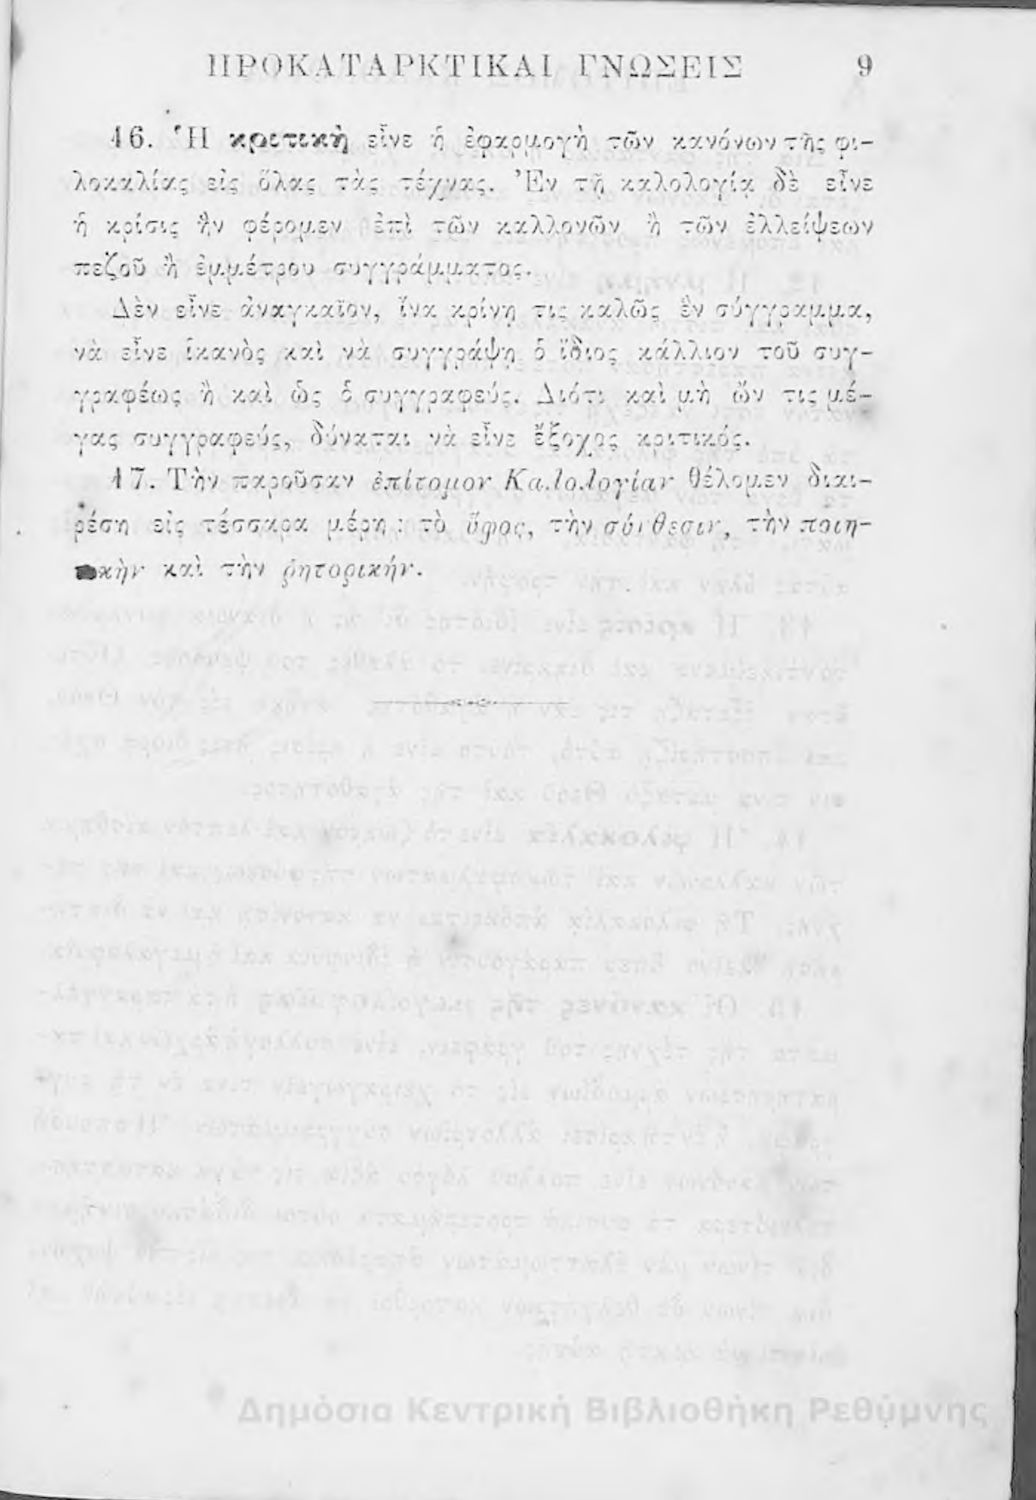 ΠΡΟΚΑΤΑΡΚΤΙΚΑΙ ΓΝΩΣΕΙΣ 9
16. Ἡ κριτικὴ εἶνε ἡ ἐφαρμογὴ τῶν κανόνων τῆς φι-
λοκαλίας εἰς ὅλας τὰς τέχνας. Ἐν τῇ καλολογίᾳ δὲ εἶνε
ἡ κρίσις ἣν φέρομεν ἐπὶ τῶν καλλονῶν ἢ τῶν ἐλλείψεων
πεζοῦ ἢ ἐμμέτρου συγγράμματος.
Δὲν εἶνε ἀναγκαῖον, ἵνα κρίνῃ τις καλῶς ἓν σύγγραμμα,
νὰ εἶνε ἱκανὸς καὶ νὰ συγγράψῃ ὁ ἴδιος κάλλιον τοῦ συγ-
γραφέως ἢ καὶ ὡς ὁ συγγραφεύς. Διότι καὶ μὴ ὤν τις μέ-
γας συγγραφεύς, δύναται νὰ εἶνε ἔξοχος κριτικός.
17. Τὴν παροῦσαν ἐπίτομον Καλολογίαν θέλομεν διαι-
ρέσῃ εἰς τέσσαρα μέρη : τὸ ὕφος, τὴν σύνθεσιν, τὴν ποιη-
τικὴν καὶ τὴν ῥητορικήν.
Δημόσια Κεντρική Βιβλιοθήκη Ρεθύμνης